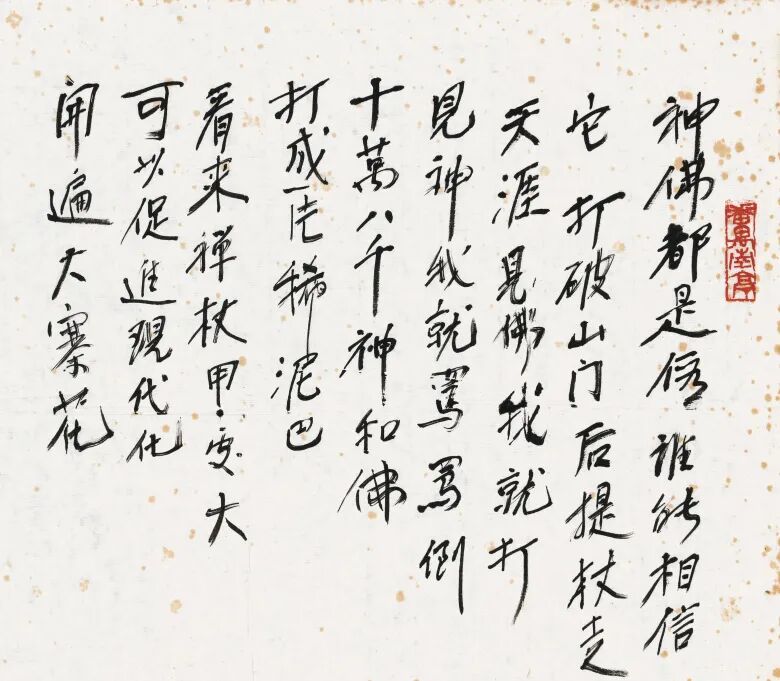 神佛都是假誰能相信
它 打破山门后提杖走
天涯見佛我就打
見神我就罵罵倒
十萬八千神和佛
打成一稀泥巴
看来禅杖用處大
可以促進現代化
開遍大寨花